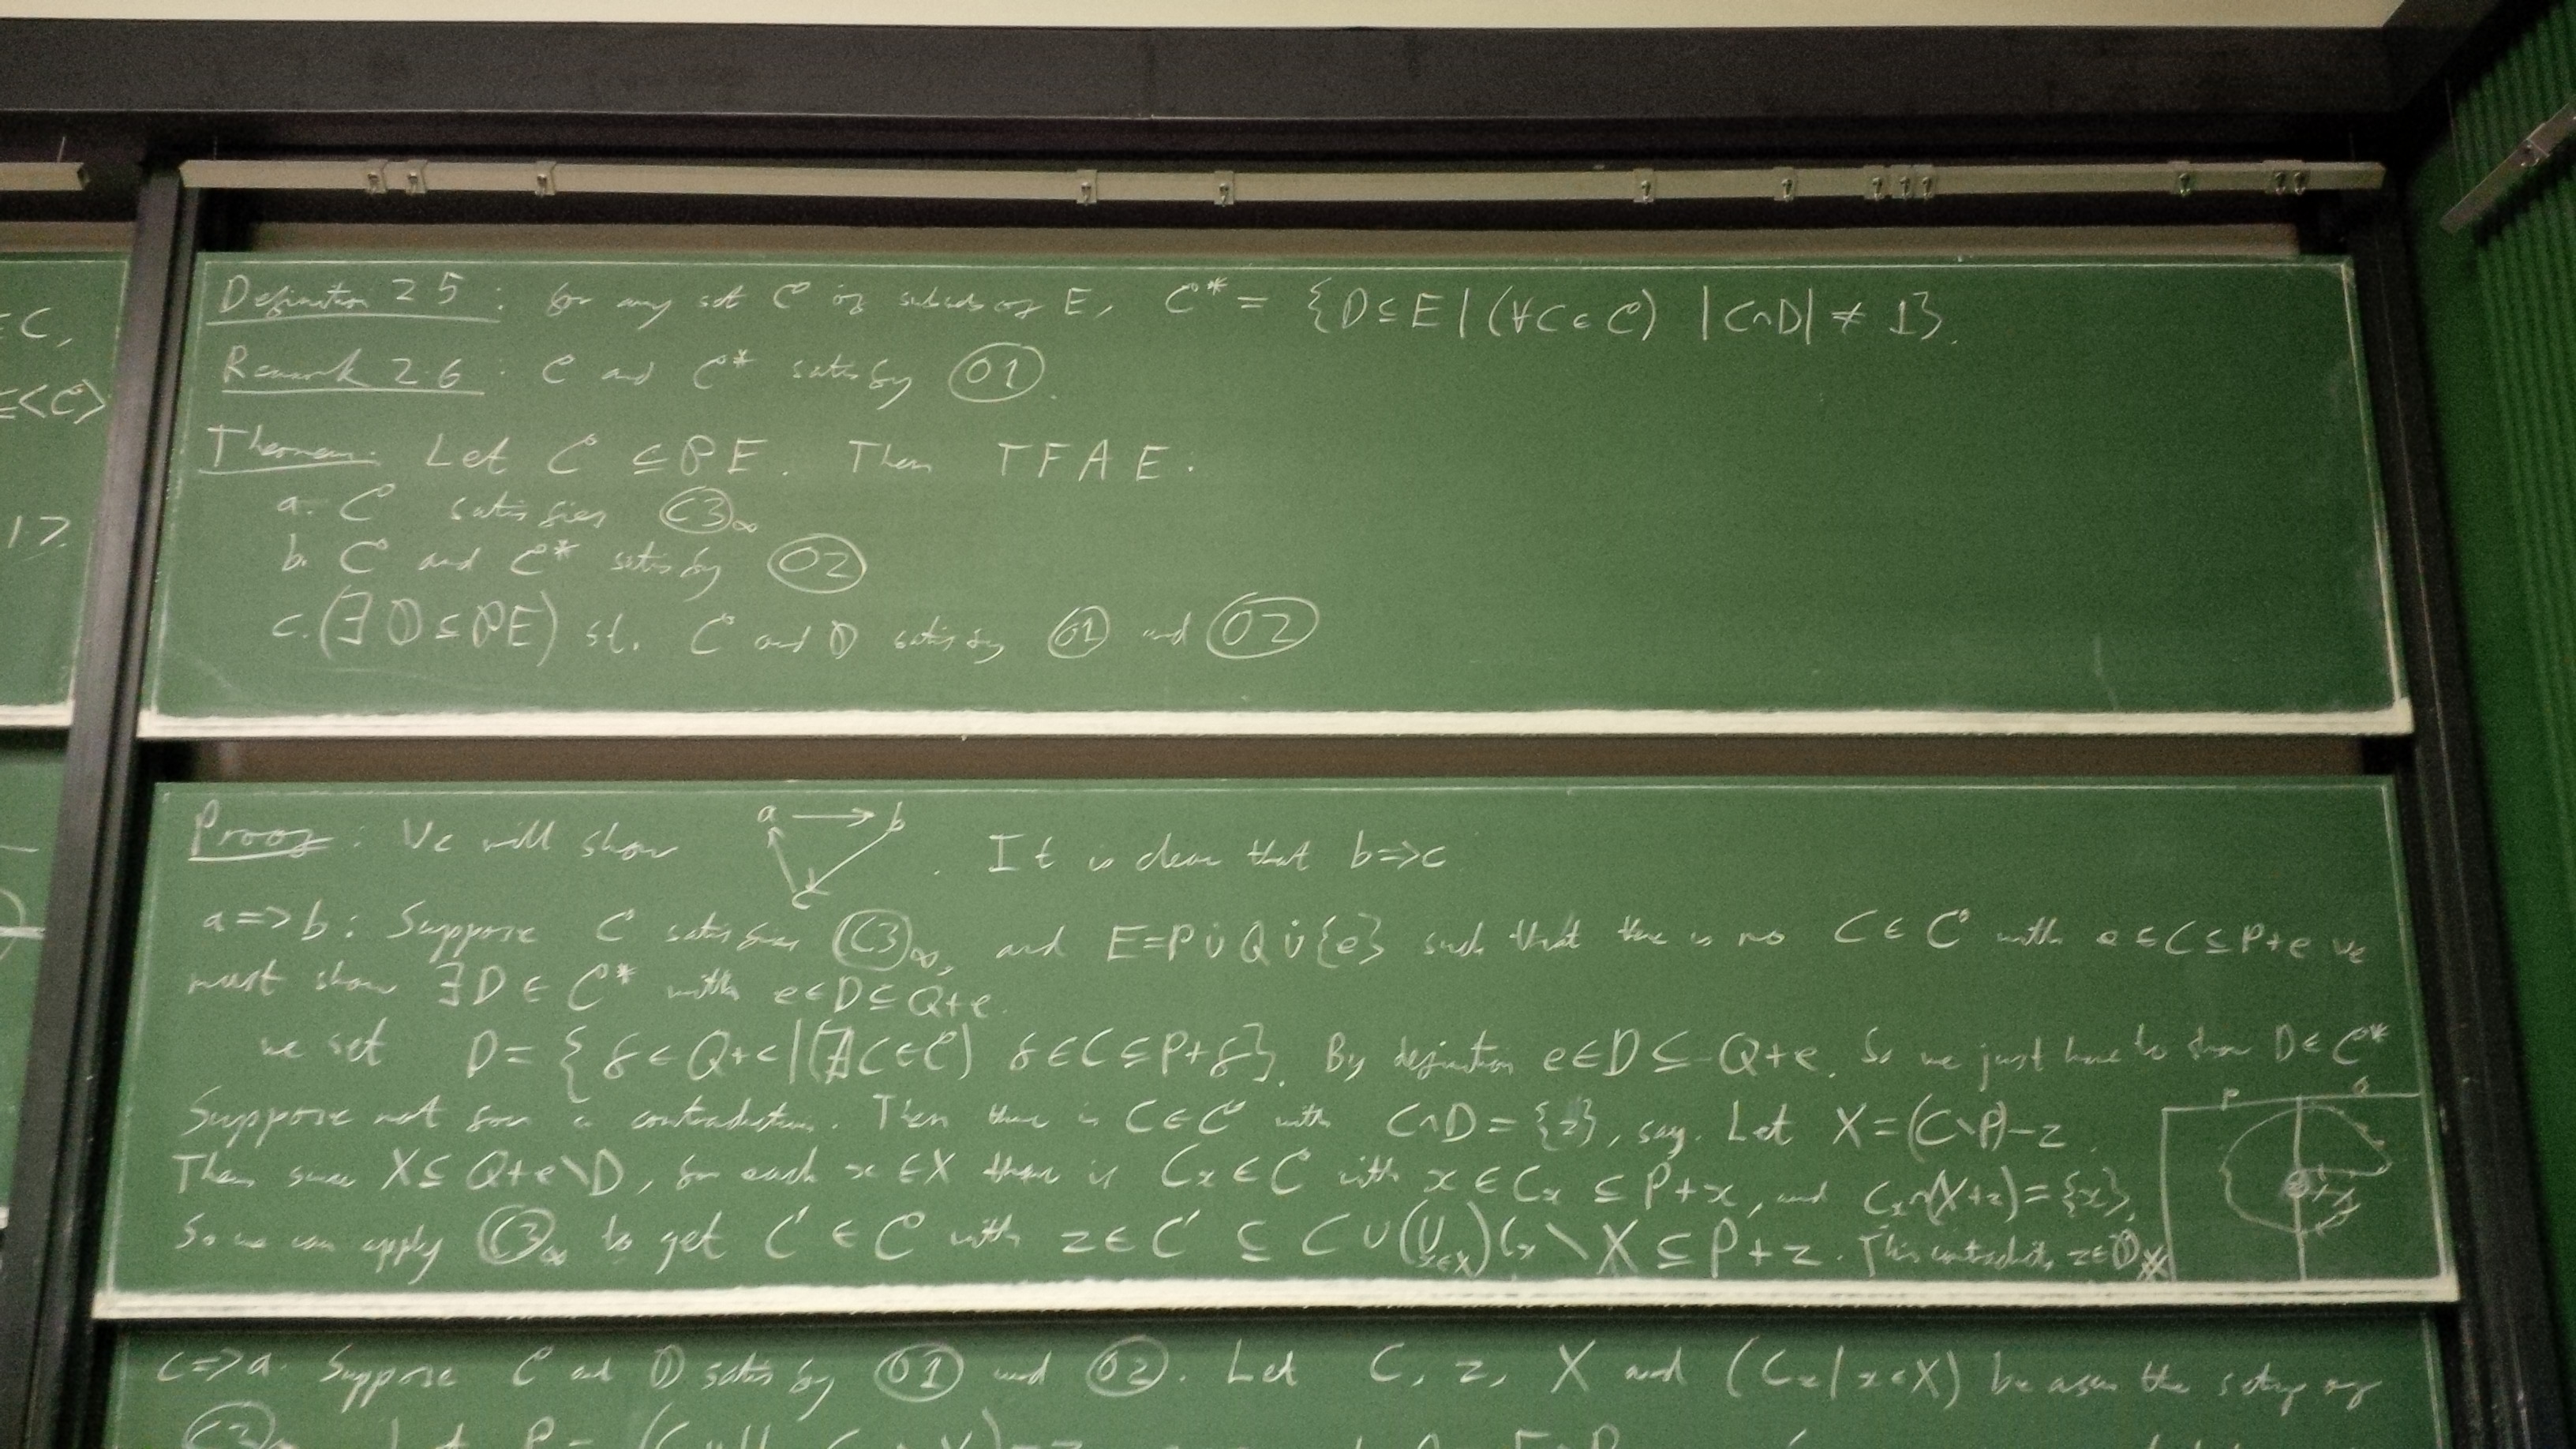 ∈C,
⊆<C>
17.
Definition 2.5: for any set C of subsets of E, C* = {D⊆E | (∀C∈C) |C∩D| ≠ 1}.
Remark 2.6: C and C* satisfy (O1).
Theorem: Let C ⊆ PE. Then TFAE:
a. C satisfies (C3)∞
b. C and C* satisfy (O2)
c. (∃D⊆PE) st. C and D satisfy (O1) and (O2)
Proof: We will show a → b → c → a. It is clear that b=>c
a=>b: Suppose C satisfies (C3)∞, and E=P∪̇Q∪̇{e} such that there is no C∈C with e∈C⊆P+e we
must show ∃D∈C* with e∈D⊆Q+e.
we set D= {f∈Q+e | (∄C∈C) f∈C⊆P+f}. By definition e∈D⊆Q+e. So we just have to show D∈C*
Suppose not for a contradiction. Then there is C∈C with C∩D={z}, say. Let X=(C\P)-z.
Then since X⊆Q+e\D, for each x∈X there is Cx∈C with x∈Cx⊆P+x, and Cx∩(X+z)={x},
So we can apply (C3)∞ to get C'∈C with z∈C'⊆C∪(∪x∈X)Cx\X⊆P+z. This contradicts z∈D
P Q
c=>a. Suppose C and D satisfy (O1) and (O2). Let C, z, X and (Cx|x∈X) be as in the setup of